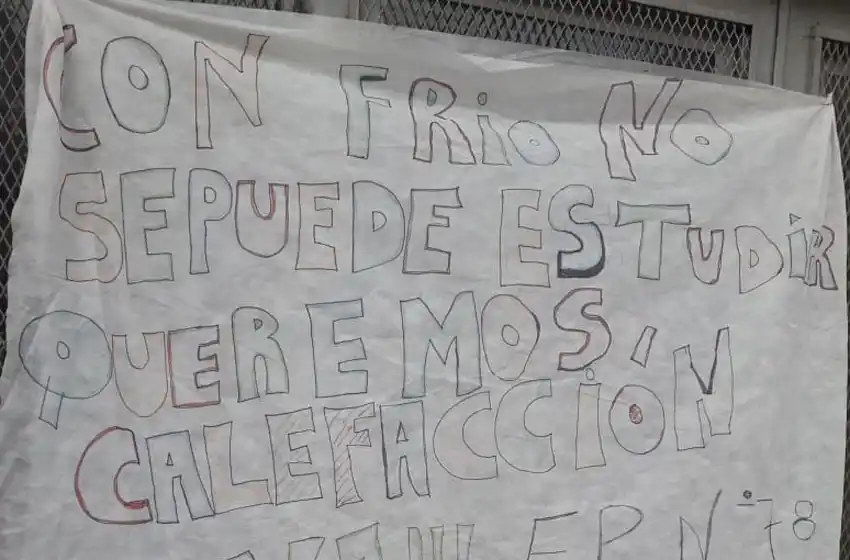 CON FRIO NO
SEPUEDE ESTUDIR
QUEREMOS
CALEFACCIÓN
EP N° 78